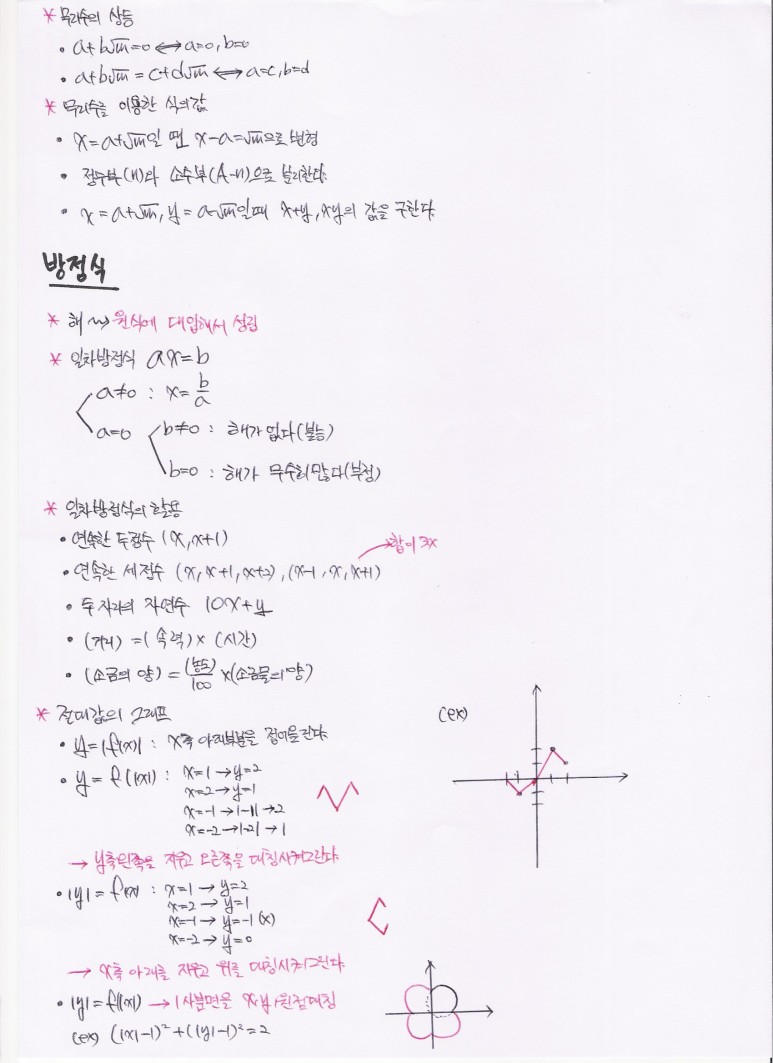 * 무리수의 상등
• a+b√m=0 ⟷ a=0, b=0
• a+b√m = c+d√m ⟷ a=c, b=d
* 무리수를 이용한 식의 값
• x=a+√m일 땐 x-a=√m으로 변형
• 정수부(n)와 소수부(A-n)으로 분리한다.
• x=a+√m, y=a-√m일때 x+y, xy의 값을 구한다.
방정식
* 해 ⇝ 원식에 대입해서 성립
* 일차방정식 ax=b
a≠0 : x=b/a
a=0
b≠0 : 해가 없다(불능)
b=0 : 해가 무수히많다(부정)
* 일차방정식의 활용
• 연속한 두정수 (x, x+1)
→합이 3x
• 연속한 세정수 (x, x+1, x+2), (x-1, x, x+1)
• 두자리의 자연수 10x+y
• (거리) = (속력) × (시간)
• (소금의 양) = (농도)/100 × (소금물의 양)
* 절대값의 그래프
(ex)
• y=|f(x)| : x축 아래부분을 접어올린다.
• y = f(|x|) : x=1 → y=2
x=2 → y=1
x=-1 → |-1| → 2
x=-2 → |-2| → 1
→ y축왼쪽을 지우고 오른쪽을 대칭시켜그린다.
• |y| = f(x) : x=1 → y=2
x=2 → y=1
x=-1 → y=-1 (x)
x=-2 → y=0
→ x축 아래를 지우고 위를 대칭시켜그린다.
• |y| = f(|x|) → 1사분면을 x,y,원점대칭
(ex) (|x|-1)²+(|y|-1)²=2